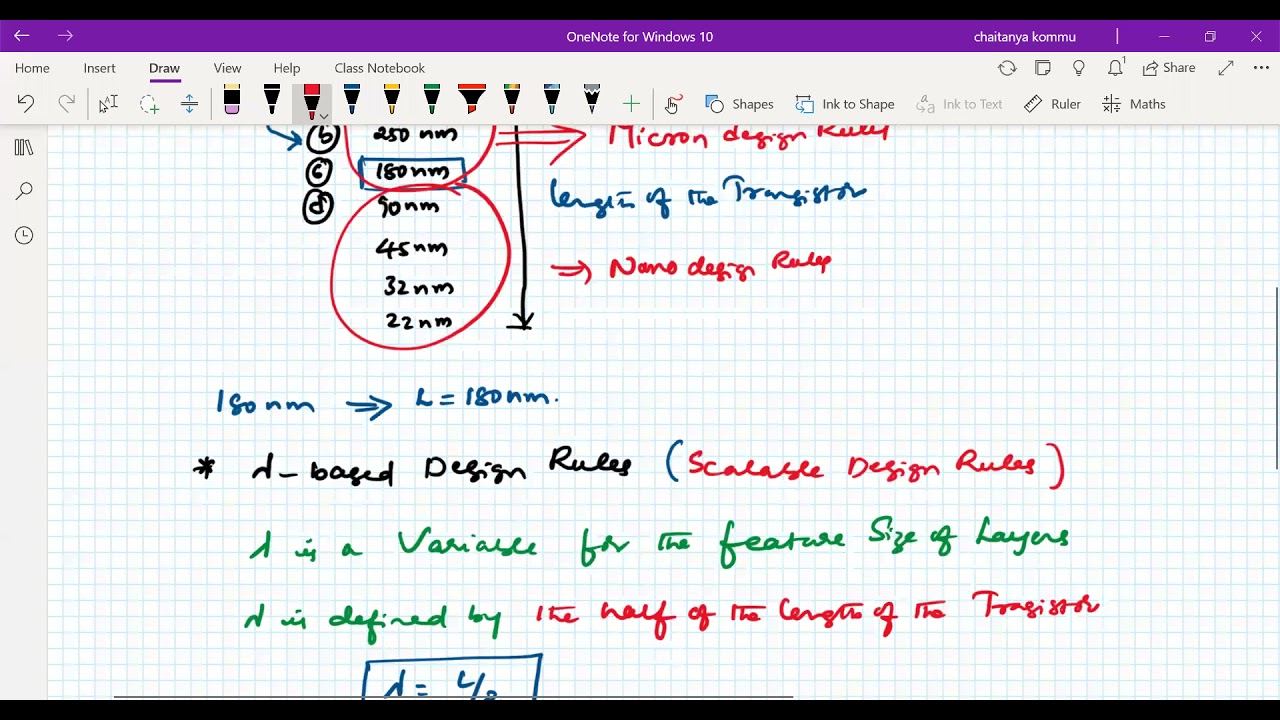 OneNote for Windows 10
chaitanya kommu
Home Insert Draw View Help Class Notebook
Share
Shapes Ink to Shape Ink to Text Ruler Maths
(b) 250 nm ⇒ Micron design Rules
(c) 180nm
Length of the Transistor
(d) 90nm
45nm
⇒ Nano design Rules
32nm
22nm
180nm ⇒ L = 180nm.
* λ-based Design Rules (Scalable Design Rules)
λ is a Variable for the feature Size of Layers
λ is defined by the half of the length of the Tragistor
λ = L/2